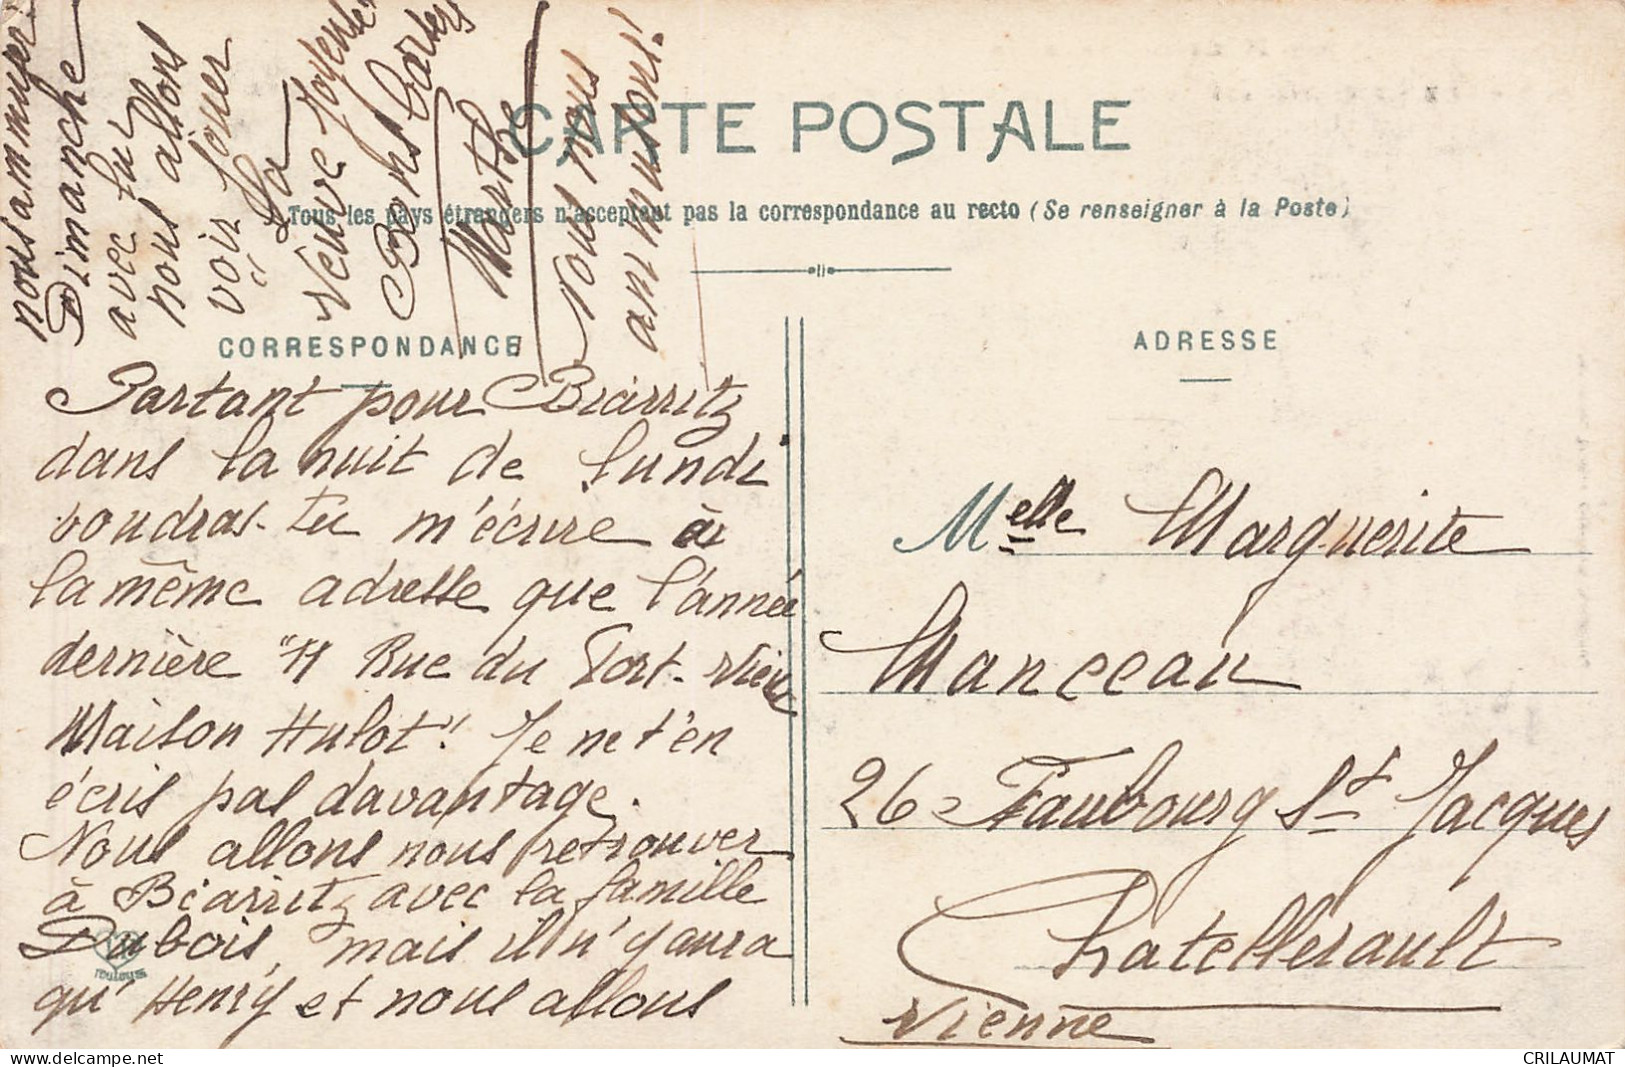 CARTE POSTALE
Tous les pays étrangers n'acceptent pas la correspondance au recto (Se renseigner à la Poste)
CORRESPONDANCE
Partant pour Biarritz
dans la nuit de lundi
voudras-tu m'écrire à
la même adresse que l'année
dernière "11 Rue du Port-Vieux
Maison Hulot". Je ne t'en
écris pas davantage.
Nous allons nous retrouver
à Biarritz avec la famille
Dubois, mais il n'y aura
qu'Henry et nous allons
nous ammuser
Dimanche
avec lui
nous allons
voir jouer
La
Veuve Joyeuse
Bons baisers
Marthe
Nous nous
ammusons!
ADRESSE
Melle Marguerite
Manceau
26 Faubourg St Jacques
Chatellerault
Vienne
delcampe.net
CRILAUMAT